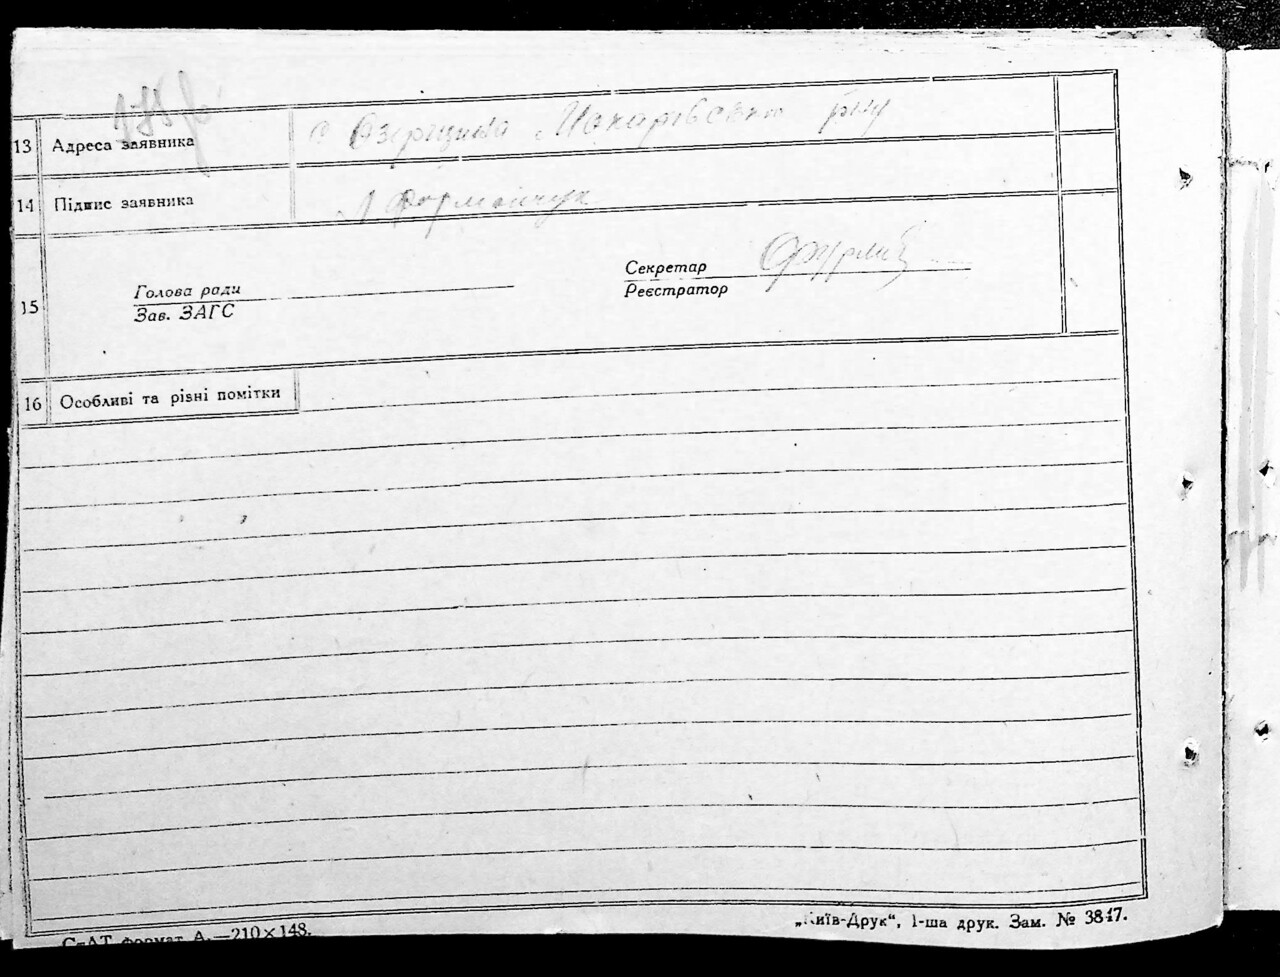 13 Адреса заявника с Озерщина Макарівського р-ну
14 Підпис заявника
15 Голова ради
Зав. ЗАГС
Секретар
Реєстратор
16 Особливі та різні помітки
формат А.—210×148.
„Київ-Друк“, 1-ша друк. Зам. № 3847.